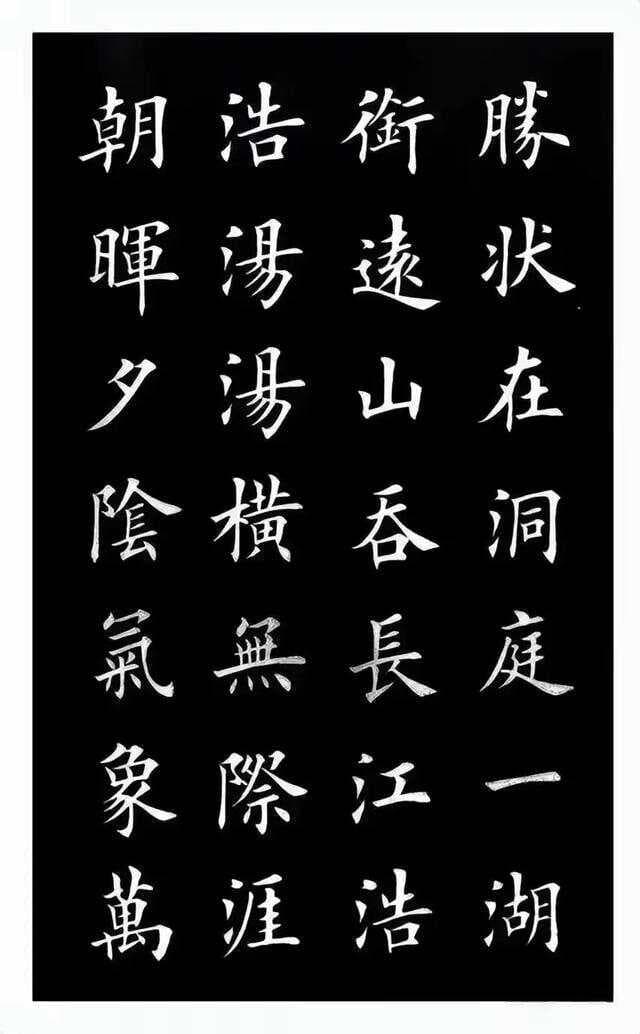 勝状在洞庭一湖
銜遠山吞長江浩
浩湯湯橫無際涯
朝暉夕陰氣象萬